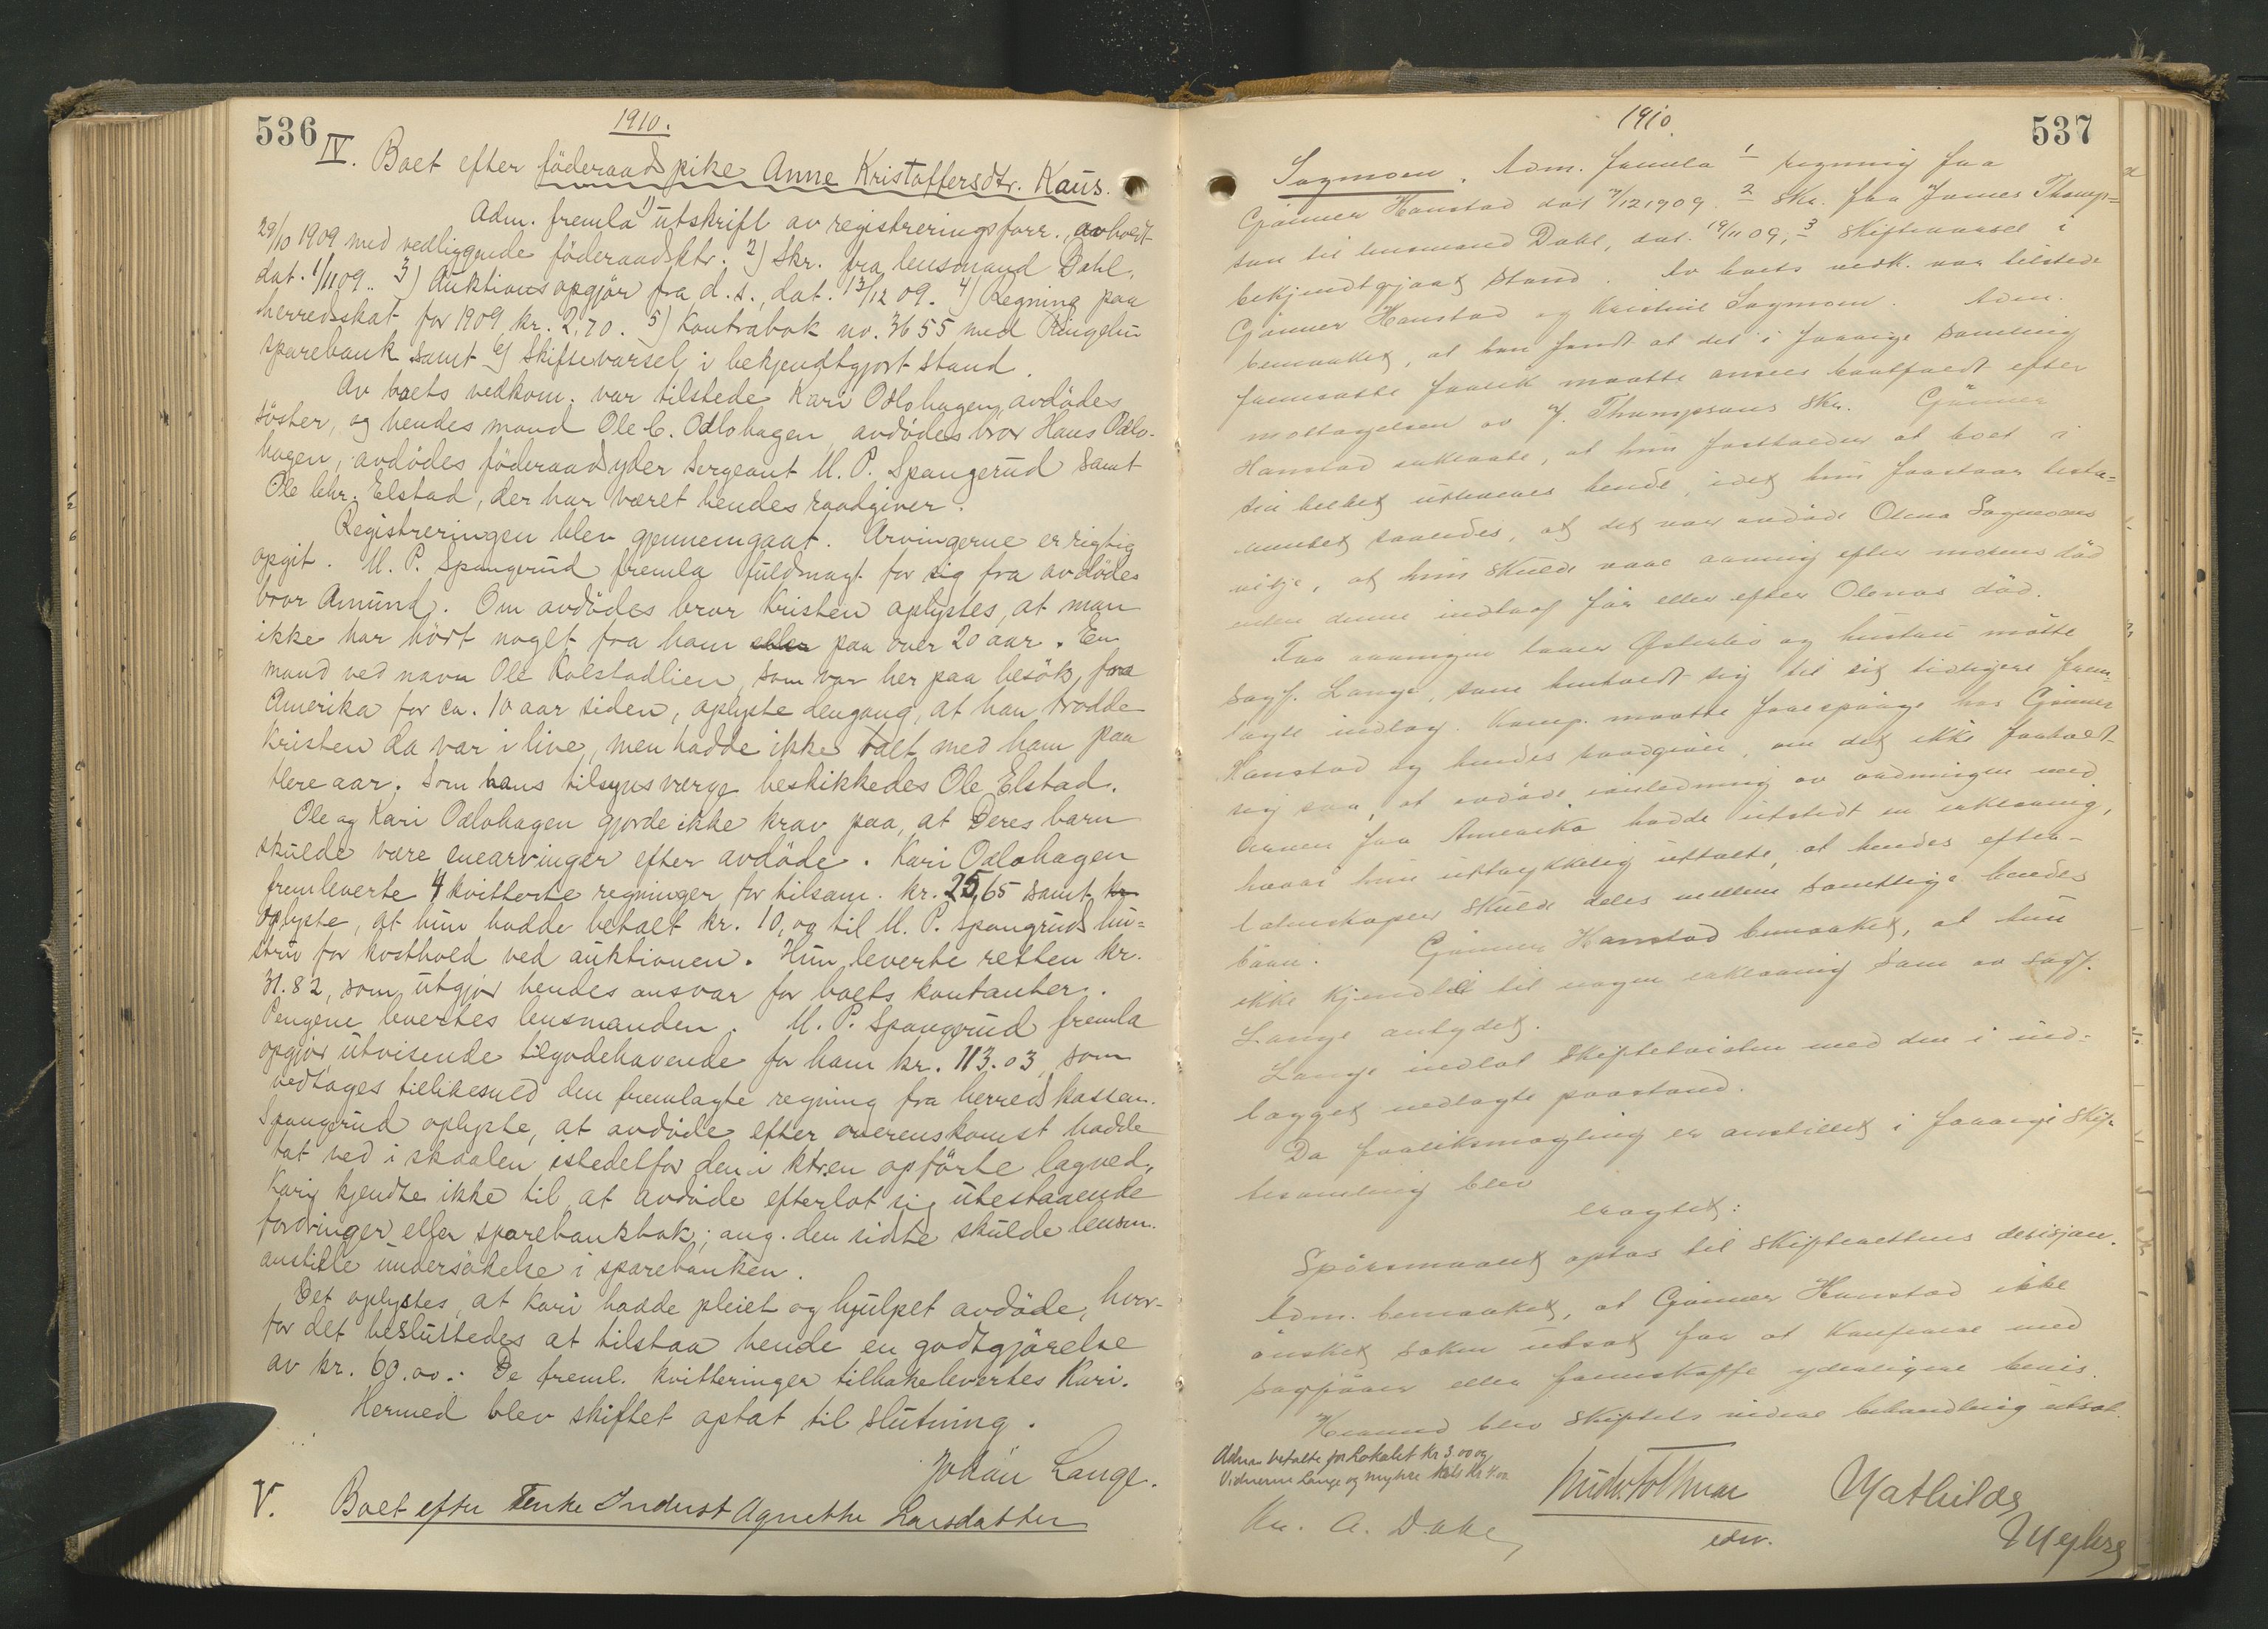 536
1910.
IV. Boet efter föderaadspike Anne Kristoffersdtr. Kaus.
Adm. fremla 1) utskrift av registreringsforr., avholdt
29/10 1909 med vedliggende föderaadsktr. 2) Skr. fra lensmand Dahl,
dat. 1/11 09.. 3) Auktionsopgjör fra d. s., dat. 13/12 09. 4) Regning paa
herredsskat for 1909 kr. 2,70. 5) Kontrabok no. 3655 med Ringebu
sparebank samt 6) Skiftevarsel i bekjendtgjort stand.
Av boets vedkom. var tilstede Kari Odlohagen, avdödes
söster, og hendes mand Ole C. Odlohagen, avdödes bror Hans Odlo-
hagen, avdödes föderaadsyder sergeant M. P. Spangerud samt
Ole Chr. Elstad, der har været hendes raadgiver.
Registreringen blev gjennemgaat. Arvingerne er rigtig
opgit. M. P. Spangerud fremla fuldmagt for sig fra avdödes
bror Amund. Om avdödes bror Kristen oplystes, at man
ikke har hört noget fra ham eller paa over 20 aar. En
mand ved navn Ole Kolstadlien, som var her paa besök fra
Amerika for ca. 10 aar siden, oplyste dengang, at han trodde
Kristen da var i live, men hadde ikke talt med ham paa
flere aar. Som hans tilsynsverge beskikkedes Ole Elstad.
Ole og Kari Odlohagen gjorde ikke krav paa, at Deres barn
skulde være enearvinger efter avdöde. Kari Odlohagen
fremleverte 4 kvitterte regninger for tilsam. kr. 25,65 samt kr
oplyste, at hun hadde betalt kr. 10,00 til M. P. Spangruds hu-
stru for kosthold ved auktionen. Hun leverte retten kr.
31.82, som utgjör hendes ansvar for boets kontanter.
Pengene levertes lensmanden. M. P. Spangrud fremla
opgjör, utvisende tilgodehavende for ham kr. 113.03, som
vedtages tillikemed den fremlagte regning fra herredskassen.
Spangrud oplyste, at avdöde efter overenskomst hadde
tat ved i skaalen istedetfor den i ktr.en opförte lagved.
Kari kjendte ikke til, at avdöde efterlot sig utestaaende
fordringer eller sparebankbok; ang. den sidste skulde lensm.
anstille undersökelse i sparebanken.
Det oplystes, at Kari hadde pleiet og hjulpet avdöde, hvor-
for det besluttedes at tilstaa hende en godtgjörelse
av kr. 60.00.. De freml. kvitteringer tilbakelevertes Kari.
Hermed blev skiftet optat til slutning.
Johan Lange.
V. Boet efter Enke Inderst Agnethe Larsdatter
537
1910.
Sagmoen. Adm. fremla 1 regning fra
Gjönner Hanstad dat 7/12 1909. 2 Skr. fra James Thomp-
son til lensmand Dahl, dat. 19/11 09, 3 Skiftevarsel i
bekjendtgjort stand. Av boets vedk. var tilstede
Gjönner Hanstad og Kristine Sagmoen. Adm.
bemerket, at han fandt at det i forrige samling
fremsatte forlik maatte ansees bortfaldt efter
mottagelsen av J. Thompsons skr. Gjönner
Hanstad erklærte, at hun fastholder at boet i
sin helhet utleveres hende, idet hun forstaar testa-
mentet saaledes, at det var avdöde Olena Sagmoens
vilje, at hun skulde være arving efter morens död
enten denne indtraf för eller efter Olenas död.
For arvingen Österbö og hustru mötte
sagf. Lange, som henholdt sig til sit tidligere frem-
lagte indlæg. Komp. maatte forespörge hos Gjönner
Hanstad og hendes raadgiver, om det ikke forholdt
sig saa, at avdöde i anledning av ordningen med
arven fra Amerika hadde utstedt en erklæring,
hvori hun uttrykkelig uttalte, at hendes efter-
latenskaper skulde deles mellem samtlige hendes
barn. Gjönner Hanstad bemerket, at hun
ikke kjendte til nogen erklæring som av sagf.
Lange antydet.
Lange indlot skiftetvisten med den i ind-
lægget nedlagte paastand.
Da forliksmægling er anstillet i forrige skif-
tesamling blev
eragtet:
Spörsmaalet optas til skifterettens decisjon.
Adm. bemerket, at Gjönner Hanstad ikke
önsket saken utsat for at konferere med
sagförer eller fremskaffe yderligere bevis.
Hermed blev skiftets videre behandling utsat.
Adm. betalte for Lokalet Kr 3.00 og
Vidnerne Lange og Myhre Kr 4.00
Kr. A. Dahl
edsv.
Mathilde
Myhre